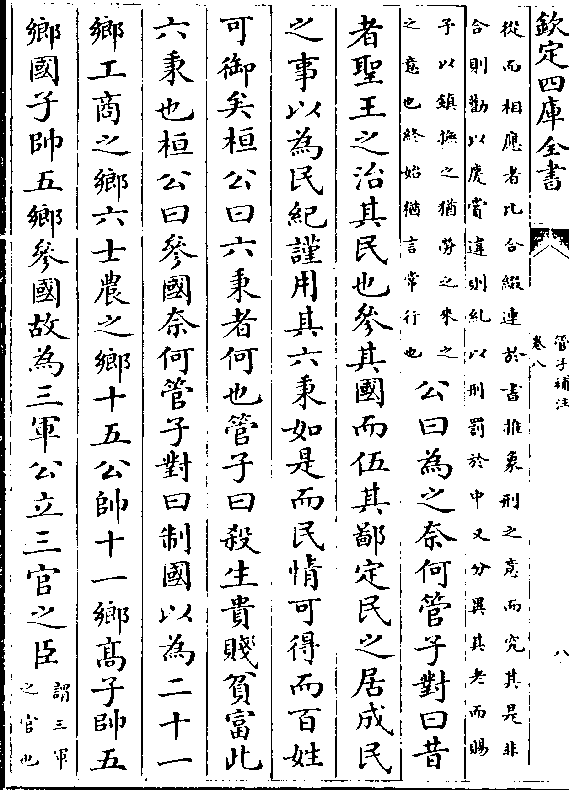 欽定四庫全書
管子補注
卷八
八
從而相應者比合綴連於書推象刑之意而究其是非
合則勸以慶賞違則糺以刑罰於中又分異其老而賜
予以鎮撫之猶勞之來之
之意也終始猶言常行也
公曰為之奈何管子對曰昔
者聖王之治其民也參其國而伍其鄙定民之居成民
之事以為民紀謹用其六秉如是而民情可得而百姓
可御矣桓公曰六秉者何也管子曰殺生貴賤貧富此
六秉也桓公曰參國奈何管子對曰制國以為二十一
鄉工商之鄉六士農之鄉十五公帥十一鄉髙子帥五
鄉國子帥五鄉參國故為三軍公立三官之臣
謂三軍
之官也